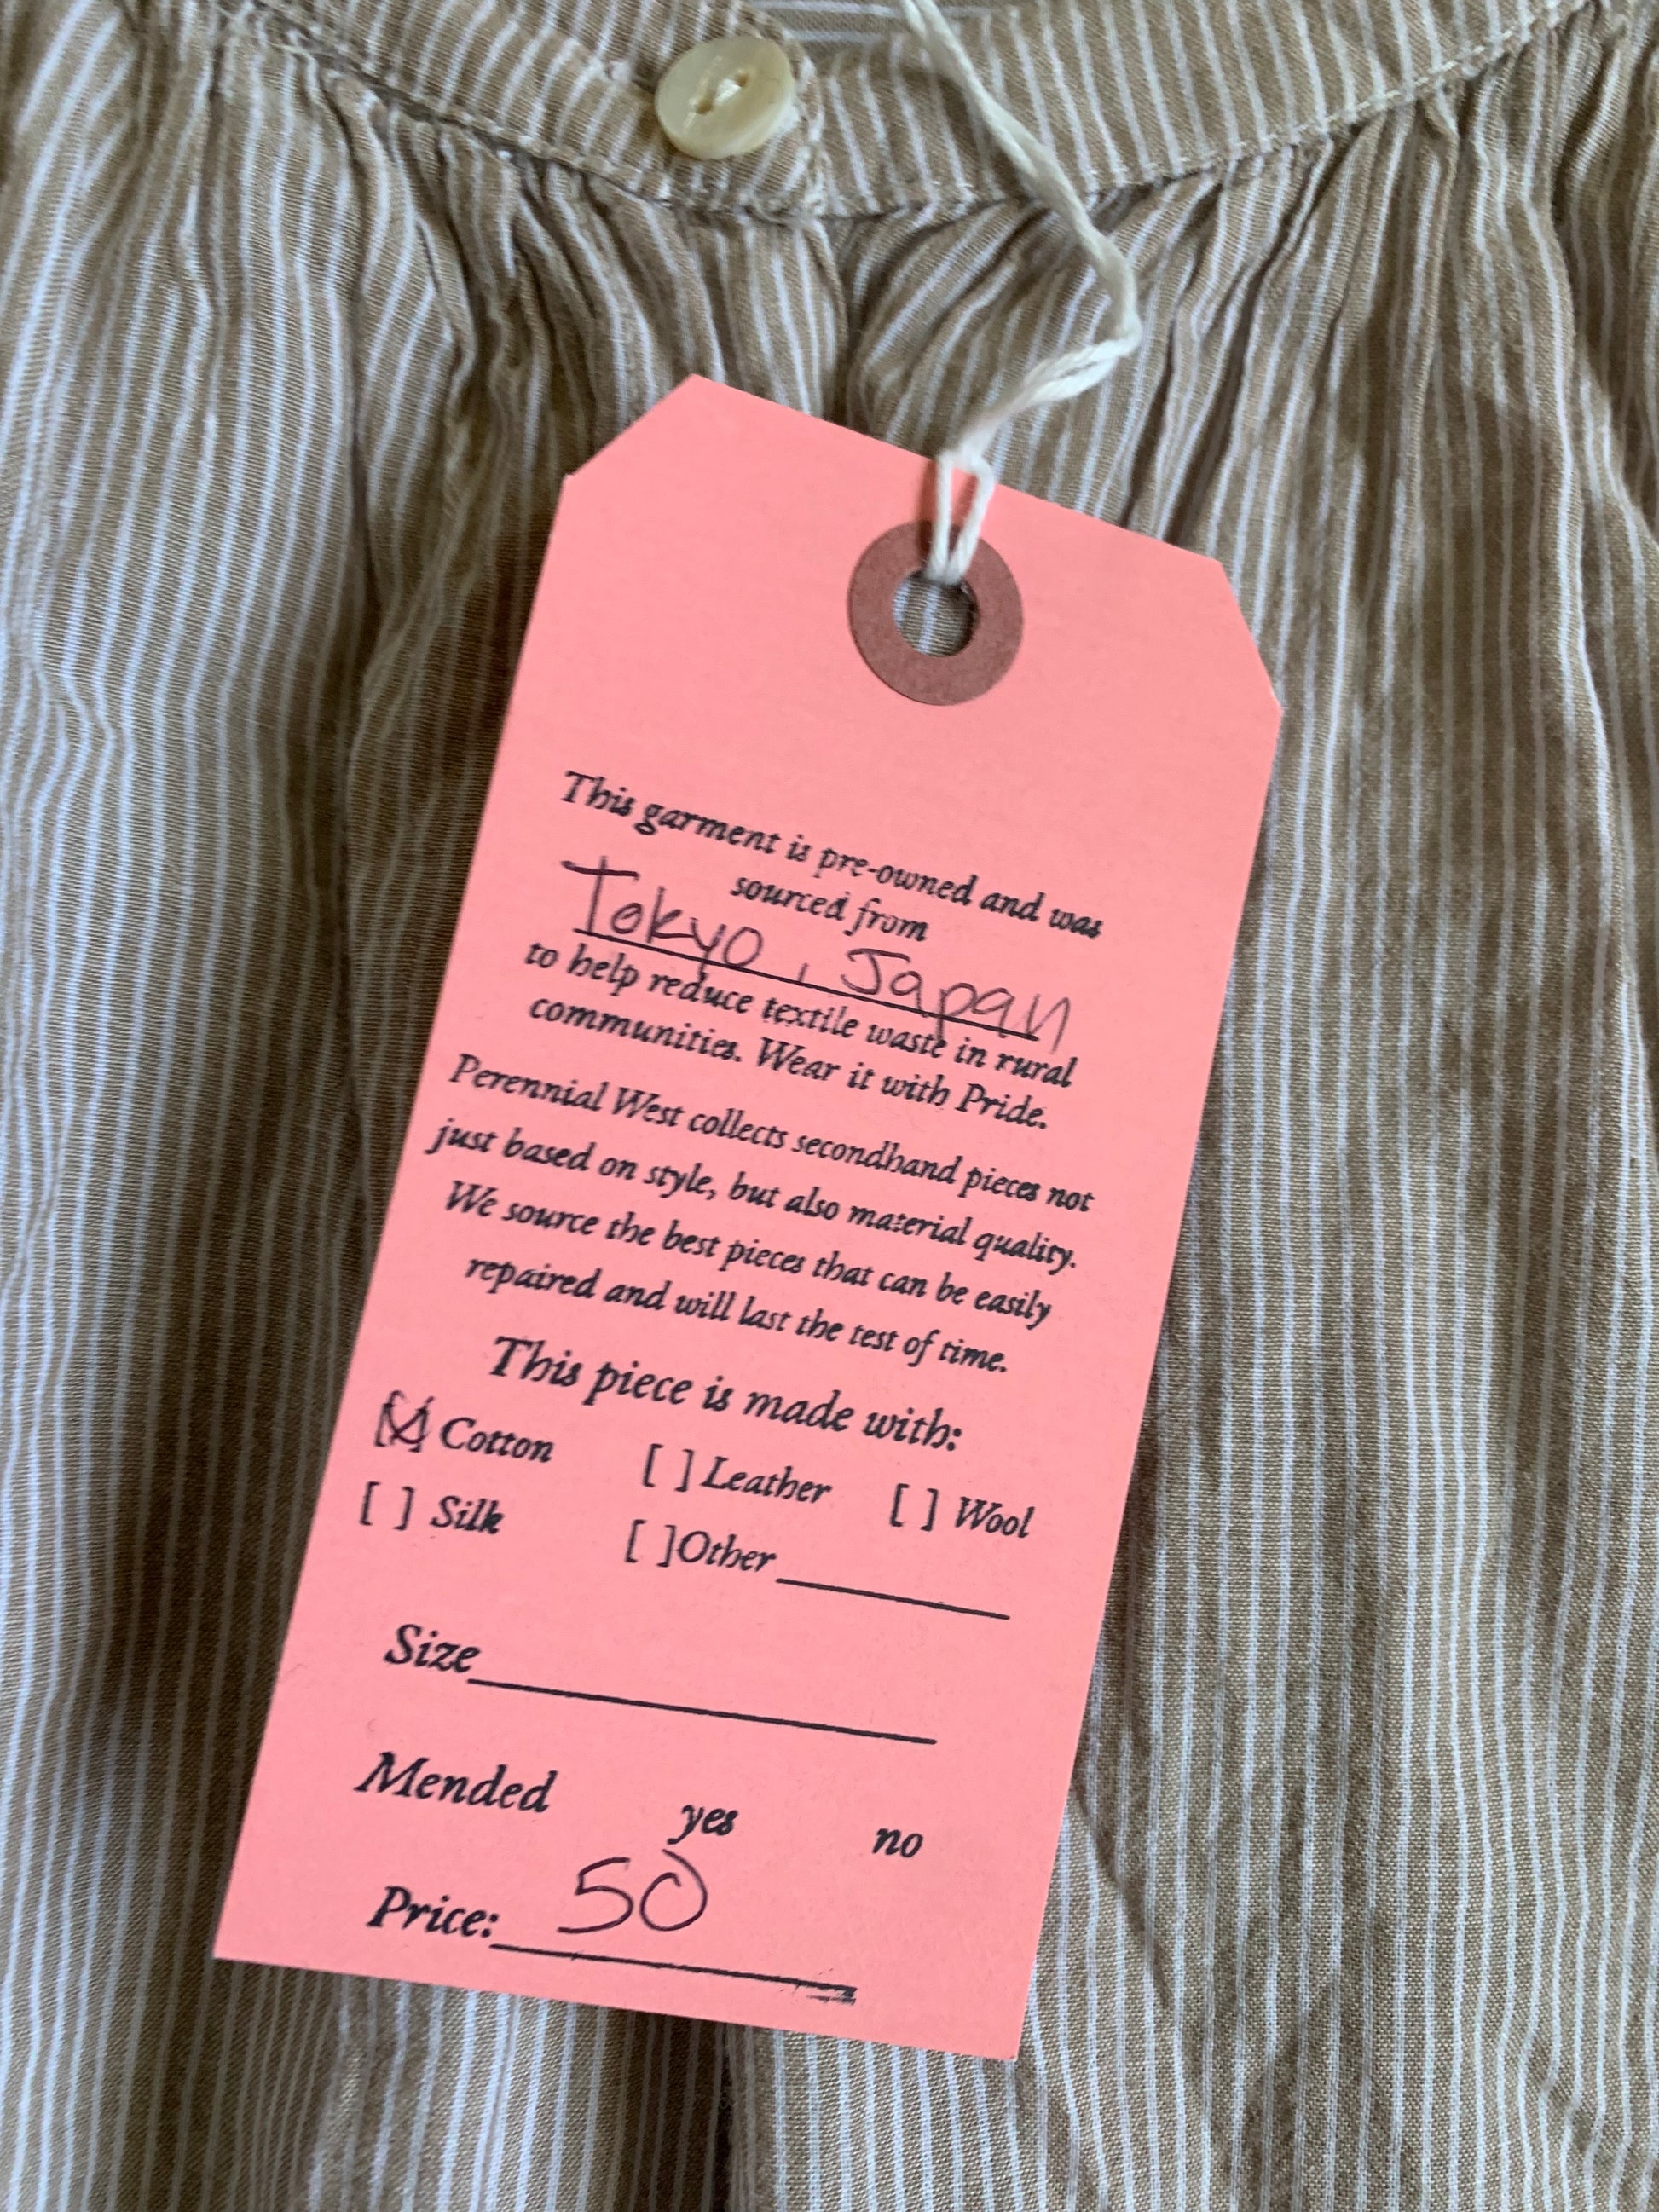 This garment is pre-owned and was
sourced from
Tokyo, Japan
to help reduce textile waste in rural
communities. Wear it with Pride.
Perennial West collects secondhand pieces not
just based on style, but also material quality.
We source the best pieces that can be easily
repaired and will last the test of time.
This piece is made with:
[X] Cotton [ ] Leather [ ] Wool
[ ] Silk [ ]Other_______
Size_______
Mended yes no
Price: 50